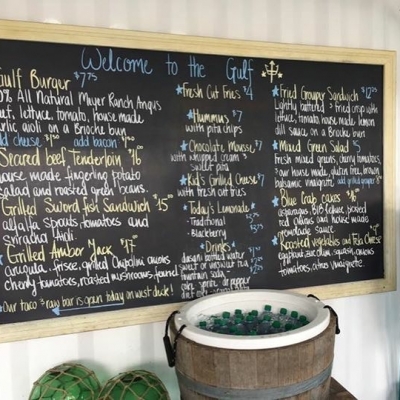 Welcome to the Gulf
Gulf Burger $7.75
All Natural Meyer Ranch Angus
lettuce, tomato, house made
garlic aioli on a Brioche bun
add cheese add bacon
Seared beef Tenderloin $16
house made fingerling potato
salad and roasted green beans.
Grilled Sword fish Sandwich $15
alfalfa sprouts, tomatoes and
sriracha Aioli
Grilled Amber Jack $17
arugula, frisee, grilled Chipolini onions
cherry tomatoes, roasted mushrooms, fennel
Our taco & raw bar is open today on west deck!
Fresh Cut Fries $4
Hummus $7
with pita chips
Chocolate Mousse $7
with whipped cream &
sweet pita
Kid's Grilled Cheese $7
with fresh cut fries
Today's Lemonade
Traditional
Blackberry
Drinks
dasani bottled water
sweet or unsweet tea
fountain soda
coke sprite dr pepper
diet coke
Fried Grouper Sandwich $12
Lightly battered & fried crisp with
lettuce, tomato, house made lemon
dill sauce on a Brioche bun
Mixed Green Salad $5
Fresh mixed greens, cherry tomatoes,
house made, gluten free, brown
balsamic vinaigrette add grilled grouper
Blue Crab Cakes $16
asparagus,
red onions and house made
Roasted vegetables and Feta Cheese
eggplant, zucchini, squash, onions
tomatoes, citrus vinaigrette.